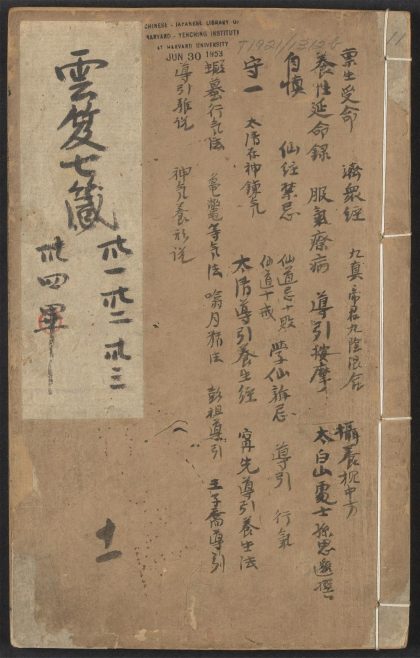 CHINESE - JAPANESE LIBRARY OF
HARVARD - YENCHING INSTITUTE
AT HARVARD UNIVERSITY
JUN 30 1953
稟生受命 濟衆經 九真帝君九陰混合 攝養枕中方
養性延命錄 服氣療病 導引按摩 太白山處士孫思邈撰
自慎 仙經禁忌 仙道忌十敗 仙道十戒 學仙雜忌 導引 行氣
守一 太清存神鍊氣 太清導引養生經 甯先導引養生法
蝦蟇行气法 龜鼈等气法 噏月精法 彭祖導引 王子喬導引
導引雜说 神气養形说
雲笈七籤
卅一卅二卅三
卅四
十一